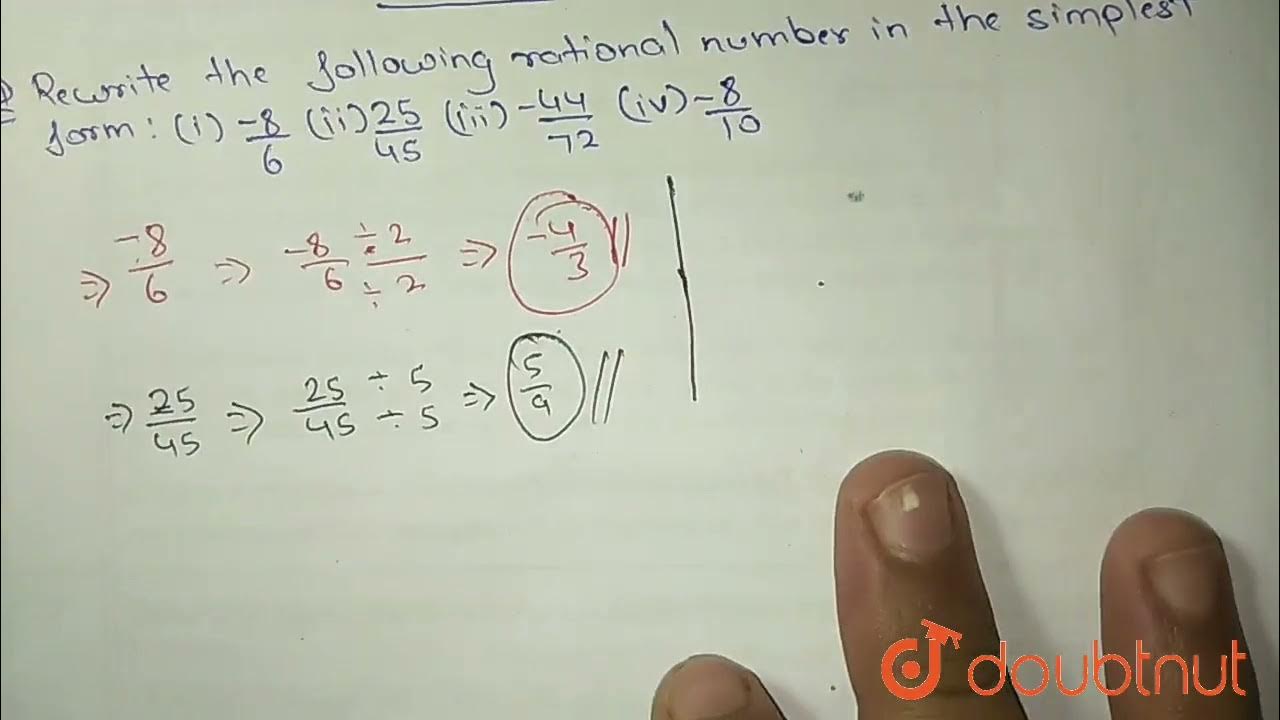 Rewrite the following rational number in the simplest
form: (i) -8/6 (ii) 25/45 (iii) -44/72 (iv) -8/10
⇒ -8/6 ⇒ -8 ÷ 2 / 6 ÷ 2 ⇒ -4/3 //
⇒ 25/45 ⇒ 25 ÷ 5 / 45 ÷ 5 ⇒ 5/9 //
doubtnut